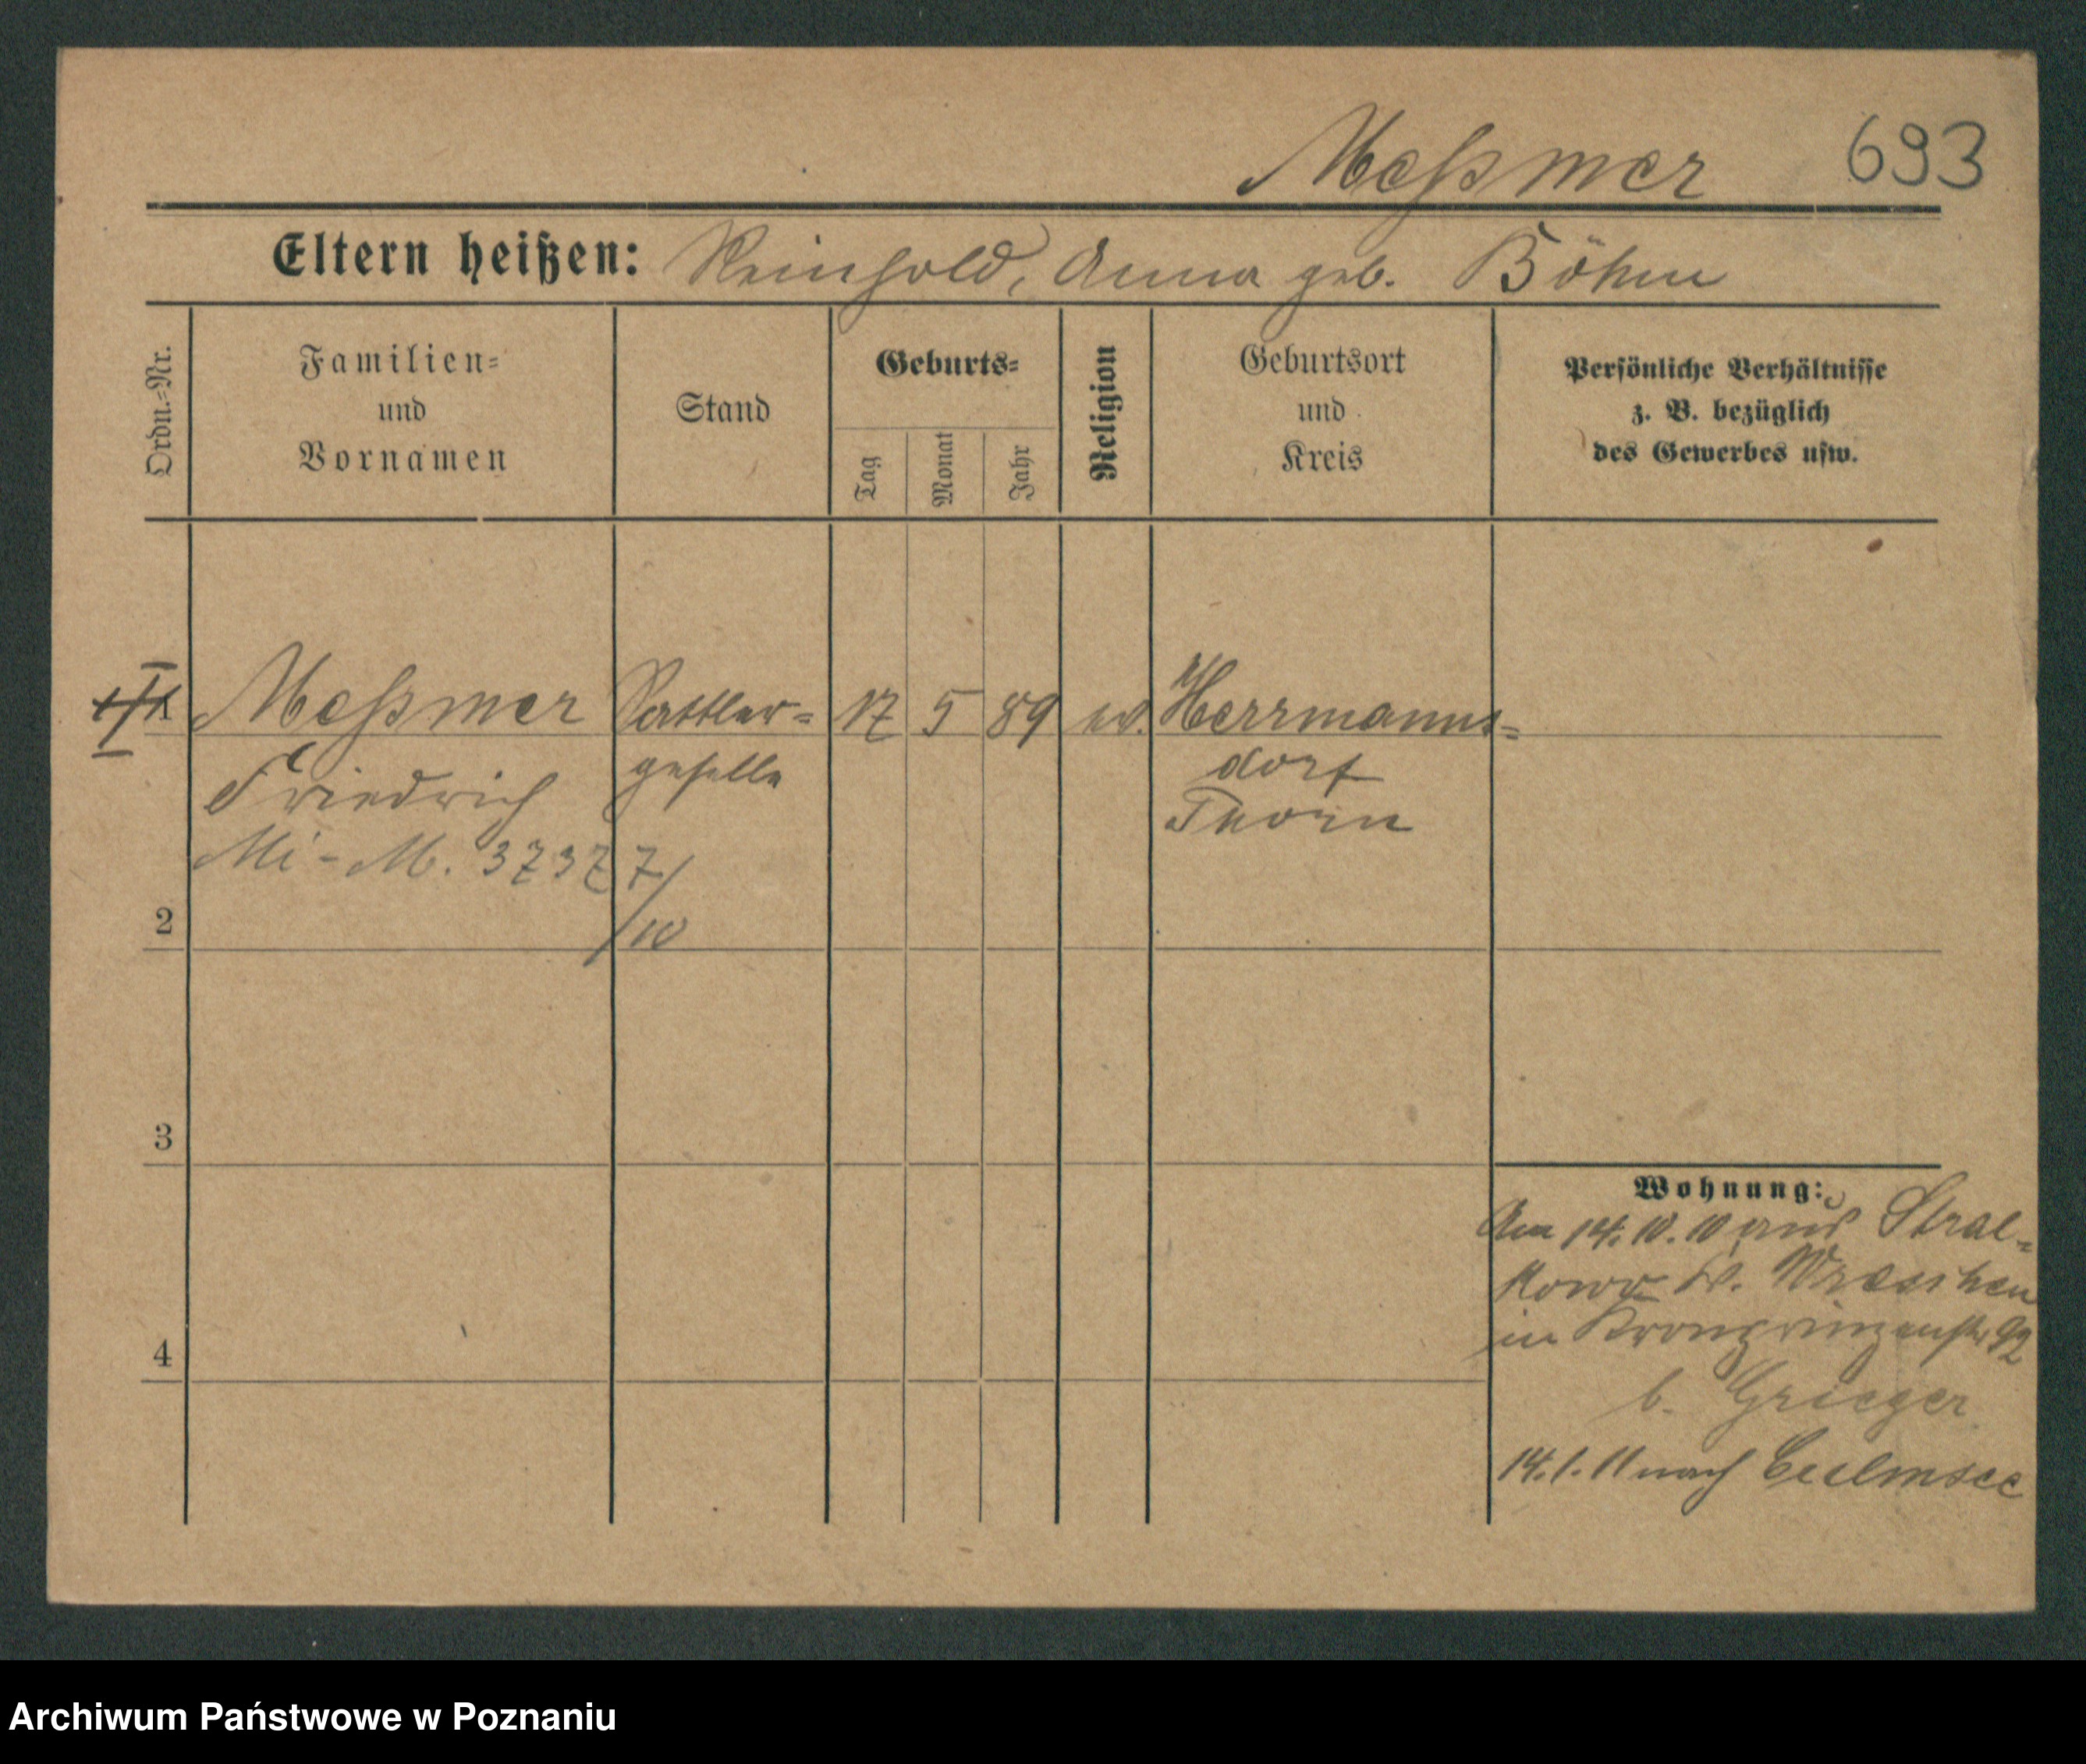 Meßmer 693
Eltern heißen: Reinhold, Anna geb. Böhm
Ordn.-Nr.
Familien-
und
Vornamen
Stand
Geburts-
Tag
Monat
Jahr
Religion
Geburtsort
und
Kreis
Persönliche Verhältnisse
z. B. bezüglich
des Gewerbes usw.
1 Meßmer Sattler- 17 5 89 ev. Herrmanns-
Friedrich geselle dorf
Thorn
Mi-M. 37377/10
2
3
4
Wohnung:
Am 14.10.10 aus Stral-
kowo Kr. Wreschen
in Kronprinzenstr 92
b. Grieger
14.1.11 nach Culmsee
Archiwum Państwowe w Poznaniu